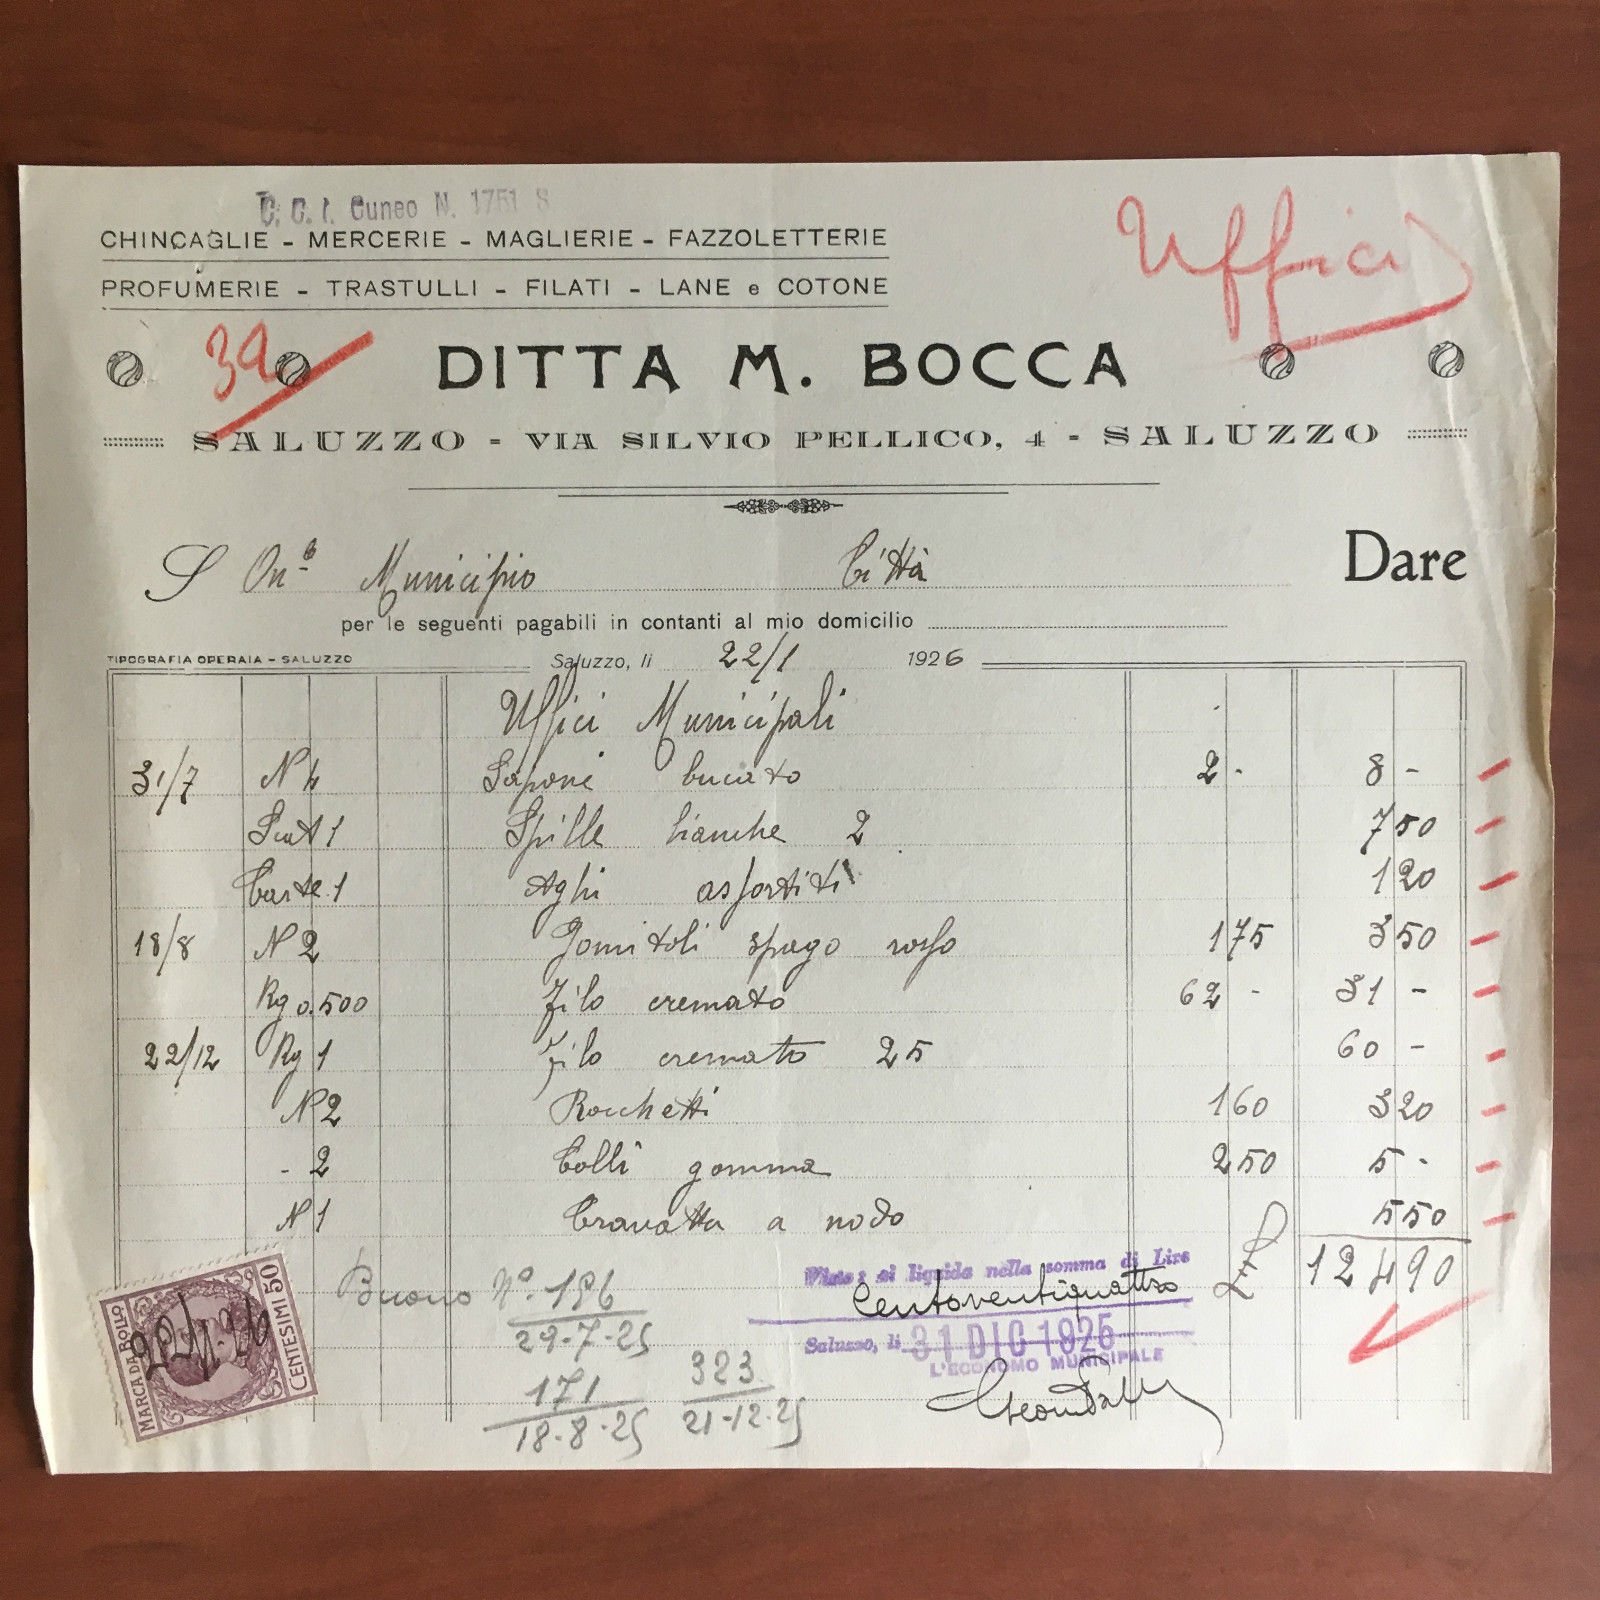 C. C. I. Cuneo N. 1751 S
CHINCAGLIE - MERCERIE - MAGLIERIE - FAZZOLETTERIE
PROFUMERIE - TRASTULLI - FILATI - LANE e COTONE
Uffici
39
DITTA M. BOCCA
SALUZZO - VIA SILVIO PELLICO, 4 - SALUZZO
S On. Municipio Città Dare
per le seguenti pagabili in contanti al mio domicilio
TIPOGRAFIA OPERAIA - SALUZZO Saluzzo, li 22/1 1926
Uffici Municipali
31/7 N 4 Saponi bucato 2 - 8 -
Scat 1 Spille bianche 2 7 50
Carte 1 Aghi assortiti 1 20
18/8 N 2 Gomitoli spago rosso 1 75 3 50
Kg 0.500 Filo cremato 62 - 31 -
22/12 Kg 1 Filo cremato 25 60 -
N 2 Rocchetti 1 60 3 20
- 2 Colli gomma 2 50 5 -
N 1 Cravatta a nodo 5 50
£ 124 90
Visto: si liquida nella somma di Lire
Centoventiquattro
Saluzzo, li 31 DIC 1925
L'ECONOMO MUNICIPALE
Buono N°. 196
29-7-25
171
18-8-25
323
21-12-25
MARCA DA BOLLO
CENTESIMI 50
22/1-26